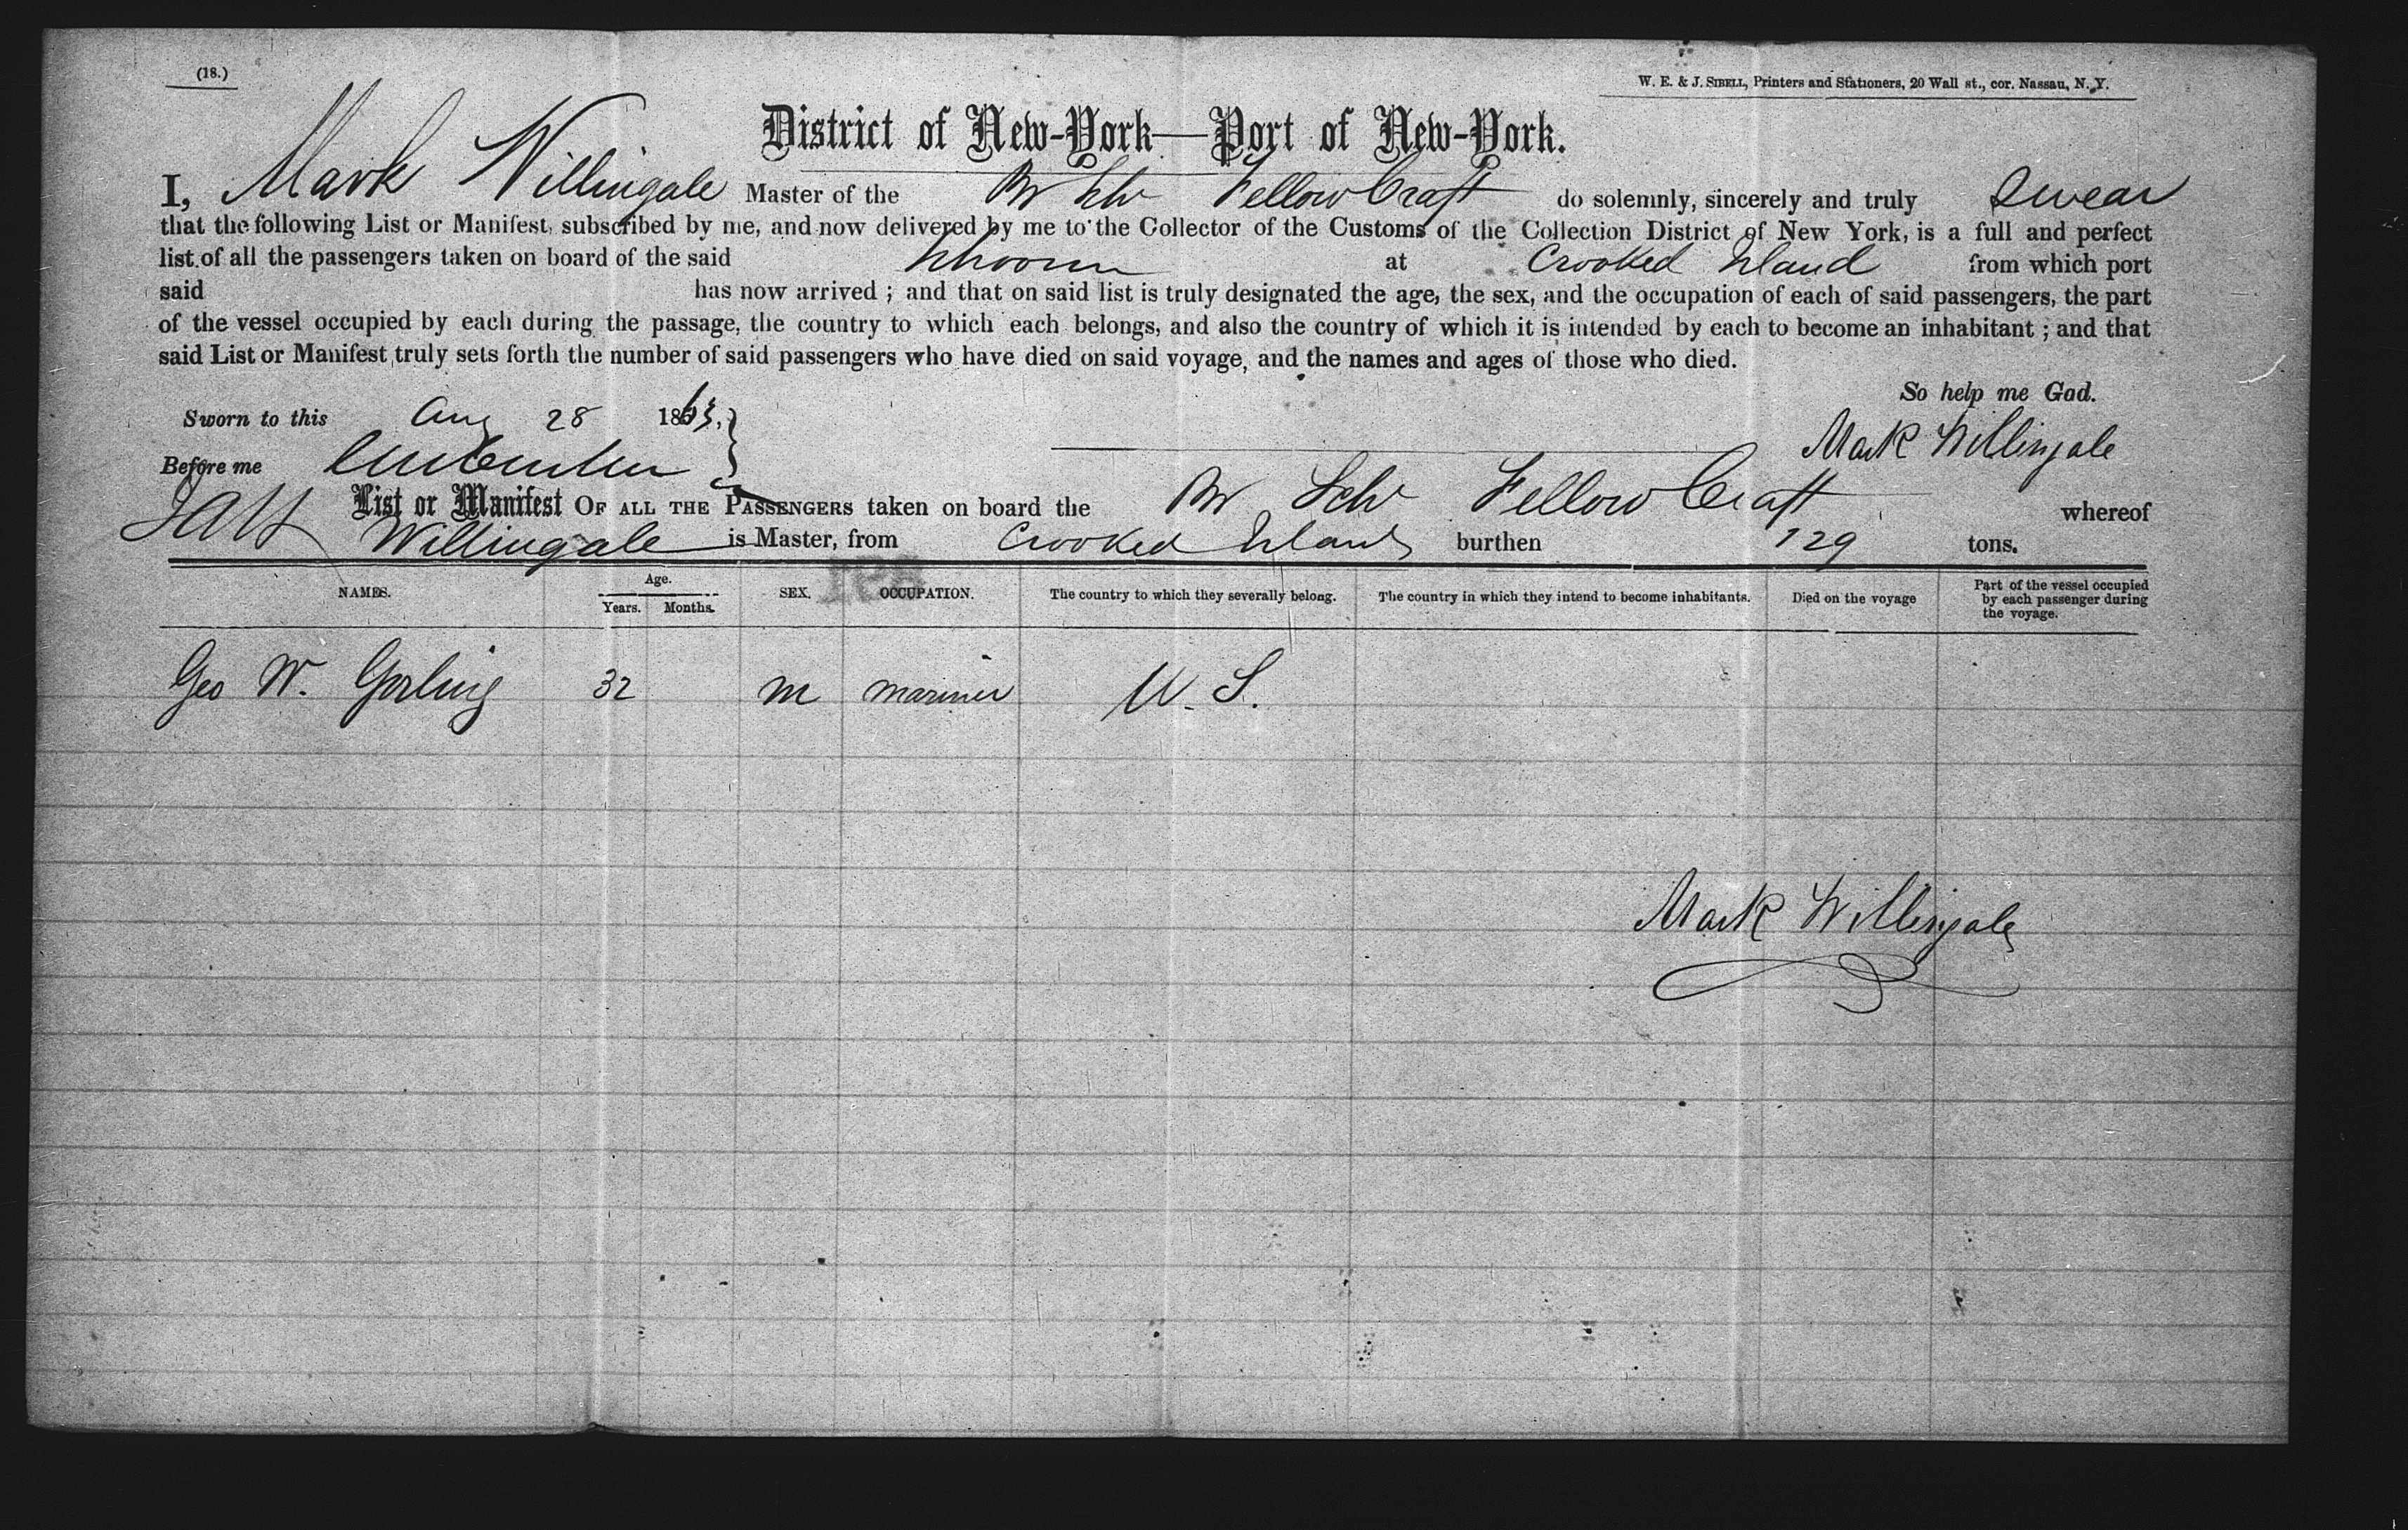 (18.)
W. E. & J. SIBELL, Printers and Stationers, 20 Wall st., cor. Nassau, N. Y.
District of New-York—Port of New-York.
I, Mark Willingale Master of the Br Schr Fellow Craft do solemnly, sincerely and truly Swear
that the following List or Manifest, subscribed by me, and now delivered by me to the Collector of the Customs of the Collection District of New York, is a full and perfect
list of all the passengers taken on board of the said Schooner at Crooked Island from which port
said has now arrived ; and that on said list is truly designated the age, the sex, and the occupation of each of said passengers, the part
of the vessel occupied by each during the passage, the country to which each belongs, and also the country of which it is intended by each to become an inhabitant ; and that
said List or Manifest truly sets forth the number of said passengers who have died on said voyage, and the names and ages of those who died.
So help me God.
Sworn to this Aug 28 1863,
Mark Willingale
Before me
List or Manifest OF ALL THE PASSENGERS taken on board the Br Schr Fellow Craft whereof
Willingale is Master, from Crooked Island burthen 129 tons.
NAMES. Age. Years. Months. SEX. OCCUPATION. The country to which they severally belong. The country in which they intend to become inhabitants. Died on the voyage Part of the vessel occupied by each passenger during the voyage.
Geo W. Gorling 32 m mariner U. S.
Mark Willingale